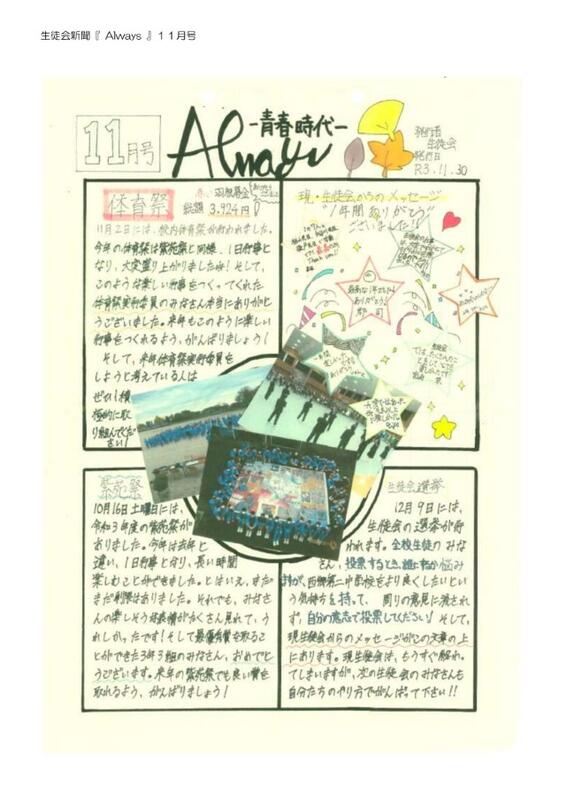 生徒会新聞『 Always 』１１月号
11月号
-青春時代-
Always
発行者
生徒会
発行日
R3.11.30
体育祭
羽根募金
総額 3,924円
11月2日には、校内体育祭が行われました。
今年の体育祭は紫苑祭と同様、1日行事と
なり、大変盛り上がりましたね！そして、
このような楽しい行事をつくってくれた
体育祭実行委員のみなさん本当にありがと
うございました。来年もこのように楽しい
行事をつくれるよう、がんばりましょう！
そして、来年体育祭実行委員を
しようと考えている人は
ぜひ！積
極的に取
り組んでくだ
さい！
現・生徒会からのメッセージ
“1年間ありがとう
ございました!!
紫苑祭
10月16日土曜日には、
令和3年度の紫苑祭が
ありました。今年は去年と
違い、1日行事となり、長い時間
楽しむことができました。とはいえ、まだ
まだ制限はありました。それでも、みなさ
んの楽しそうな表情がたくさん見れて、う
れしかったです！そして最優秀賞を取るこ
とができた3年3組のみなさん、おめでと
うございます。来年の紫苑祭でも良い賞を
取れるよう、がんばりましょう！
生徒会選挙
12月9日には、
生徒会の選挙が行
われます。全校生徒のみな
さん、投票するとき、誰にするか悩み
ますが、西郷第二中学校をより良くしたいとい
う気持ちを持って、周りの意見に流され
ず、自分の意志で投票してください！そして、
現生徒会からのメッセージがこの文章の上
にあります。現生徒会は、もうすぐ解れ
てしまいますが、次の生徒会のみなさんも
自分たちのやり方でがんばって下さい!!